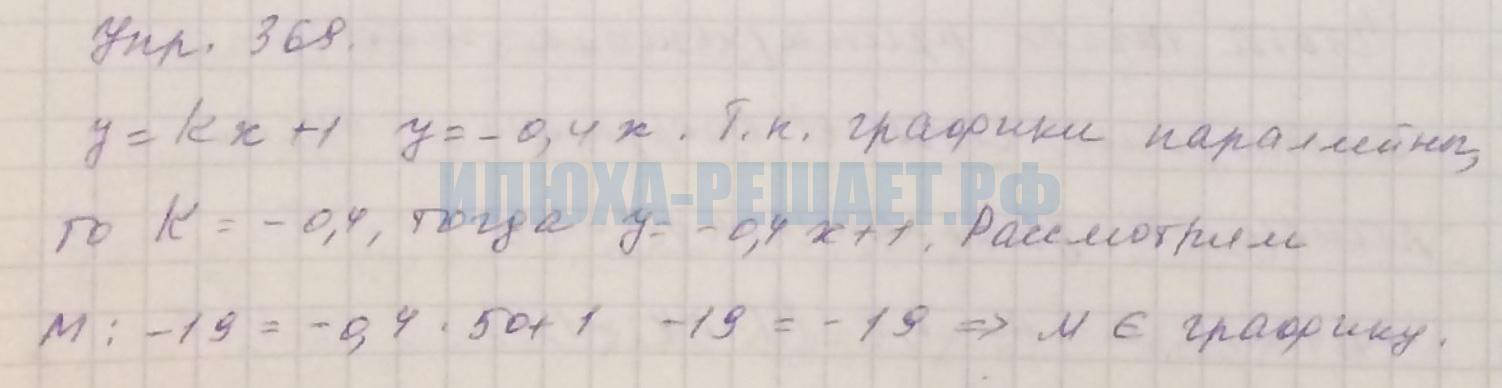 Упр. 368.
y = kx + 1 y = -0,4x. Т.к. графики параллейны,
ИЛЮХА-РЕШАЕТ.РФ
то k = -0,4, тогда y = -0,4x+1. Рассмотрим
M: -19 = -0,4 · 50 + 1 -19 = -19 => M ∈ графику.